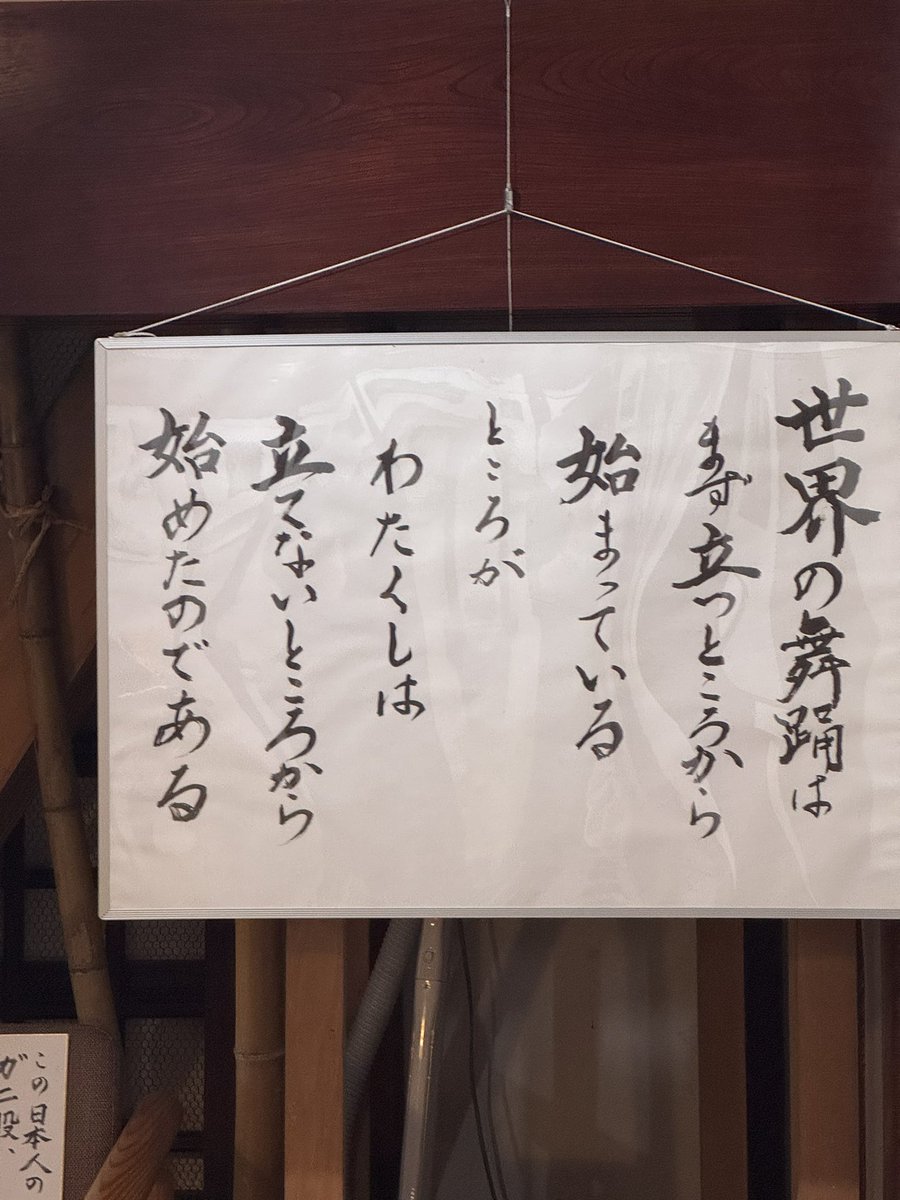 世界の舞踊は
まず立つところから
始まっている
ところが
わたくしは
立てないところから
始めたのである
この日本人の
が二段、